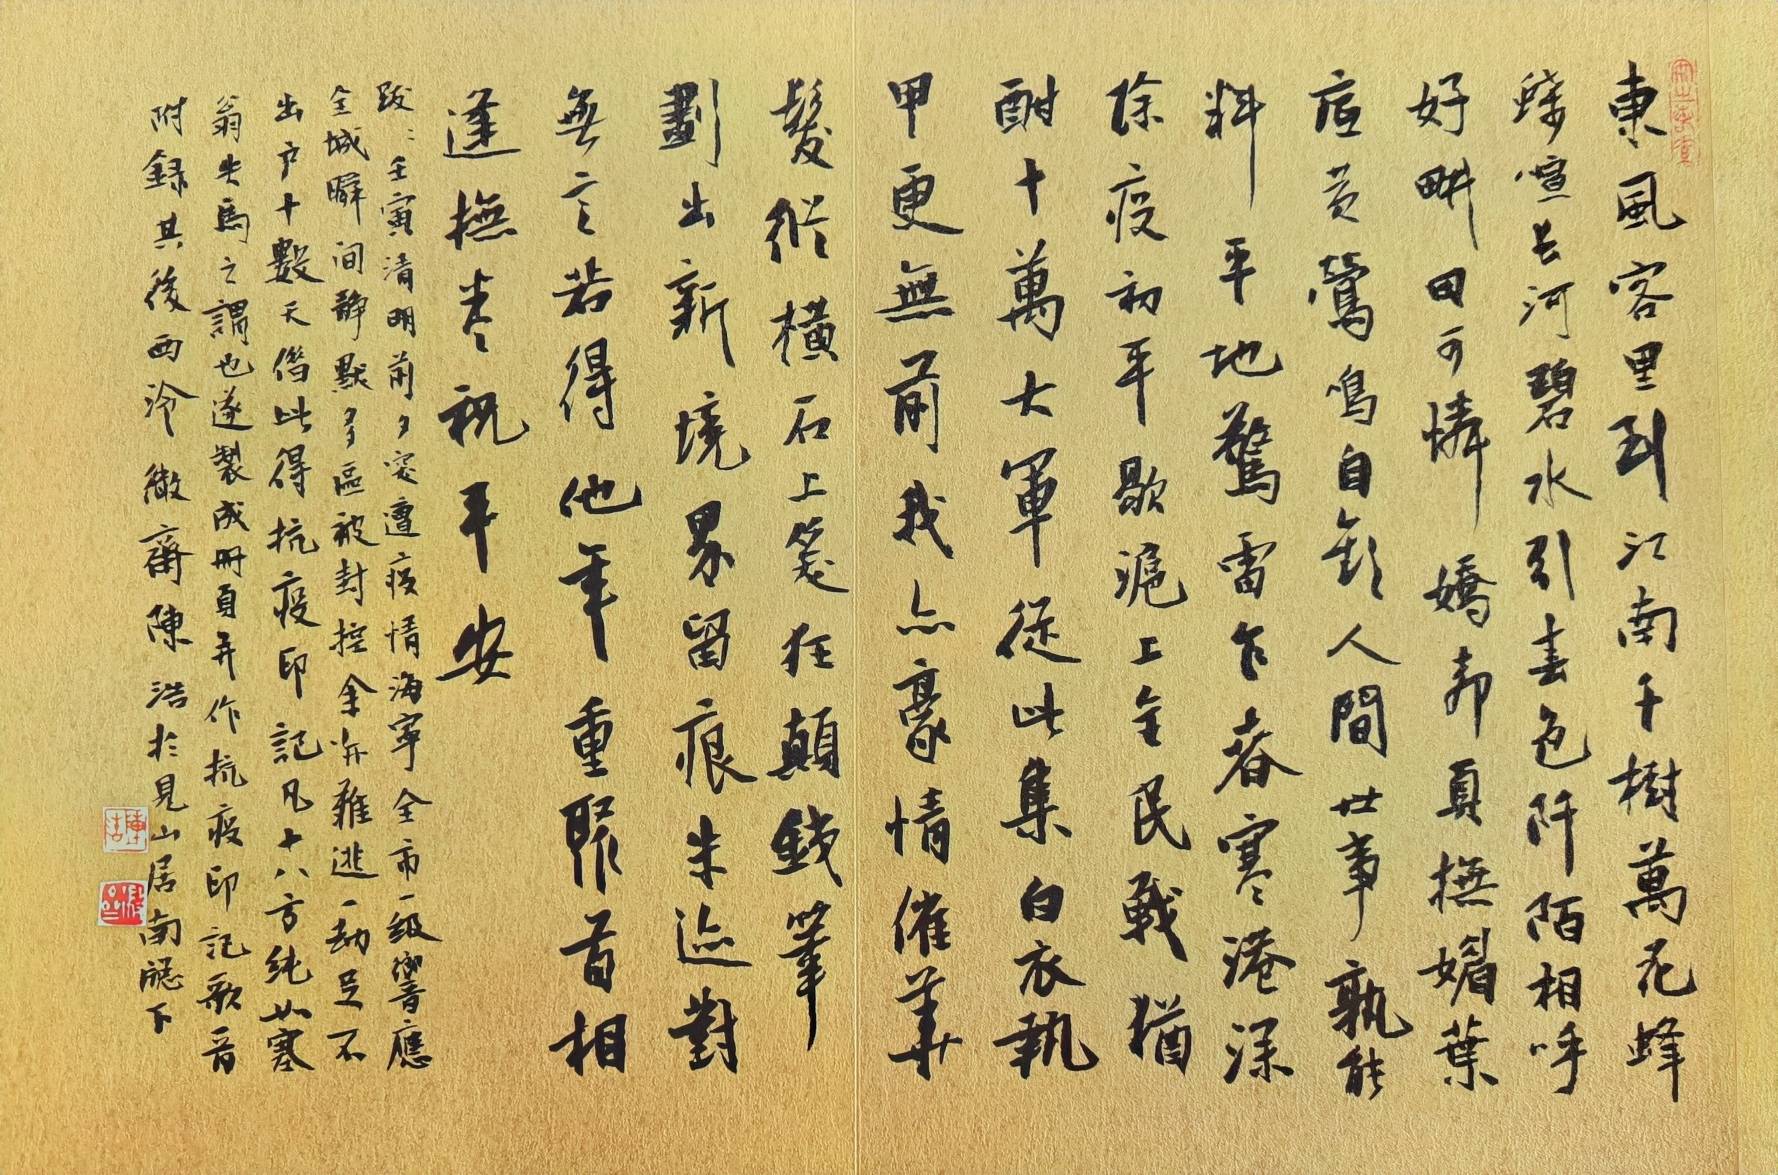 東風客里到江南千樹萬花蜂
蝶喧長河碧水引春色阡陌相呼
好畊田可憐嬌柳夏撫媚葉
底黃鶯鳴自歡人間世事孰能
料平地驚雷乍春寒港深
除疫初平歇滬上全民戰猶
酣十萬大軍從此集白衣執
甲更無前我亦豪情催華
髮縱橫石上箋狂顛錢筆
劃出新境界留痕朱迹對
無言若得他年重聚首相
逢撫卷祝平安
跋：壬寅清明前夕突遭疫情海寧全市一級響應
全城瞬間靜默多區被封控余亦難逃一劫足不
出戶十數天借此得抗疫印記凡十八方純如塞
翁失馬之謂也遂製成冊頁并作抗疫印記歌旨
附錄其後西泠 齋陳浩於見山居南牕下
陳浩